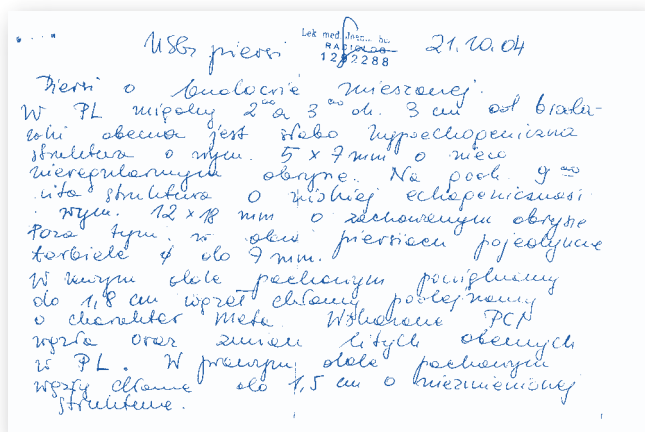 USG piersi
Lek. med.
RADIOLOG
1292288
21.10.04
Piersi o budowie mieszanej.
W PL między 2°° a 3°° ok. 3 cm od broda-
wki obecna jest słabo hypoechogeniczna
struktura o wym. 5 x 7 mm o nieco
nieregularnym obrysie. Na godz. 9°°
lita struktura o niskiej echogeniczności
wym. 12 x 18 mm o zachowanym obrysie
Poza tym w obu piersiach pojedyncze
torbiele φ do 7 mm.
W lewym dole pachowym powiększony
do 1,8 cm węzeł chłonny podejrzany
o charakter meta. Wskazana PCN
węzła oraz zmian litych obecnych
w PL. W prawym dole pachowym
węzły chłonne do 1,5 cm o niezmienionej
strukturze.